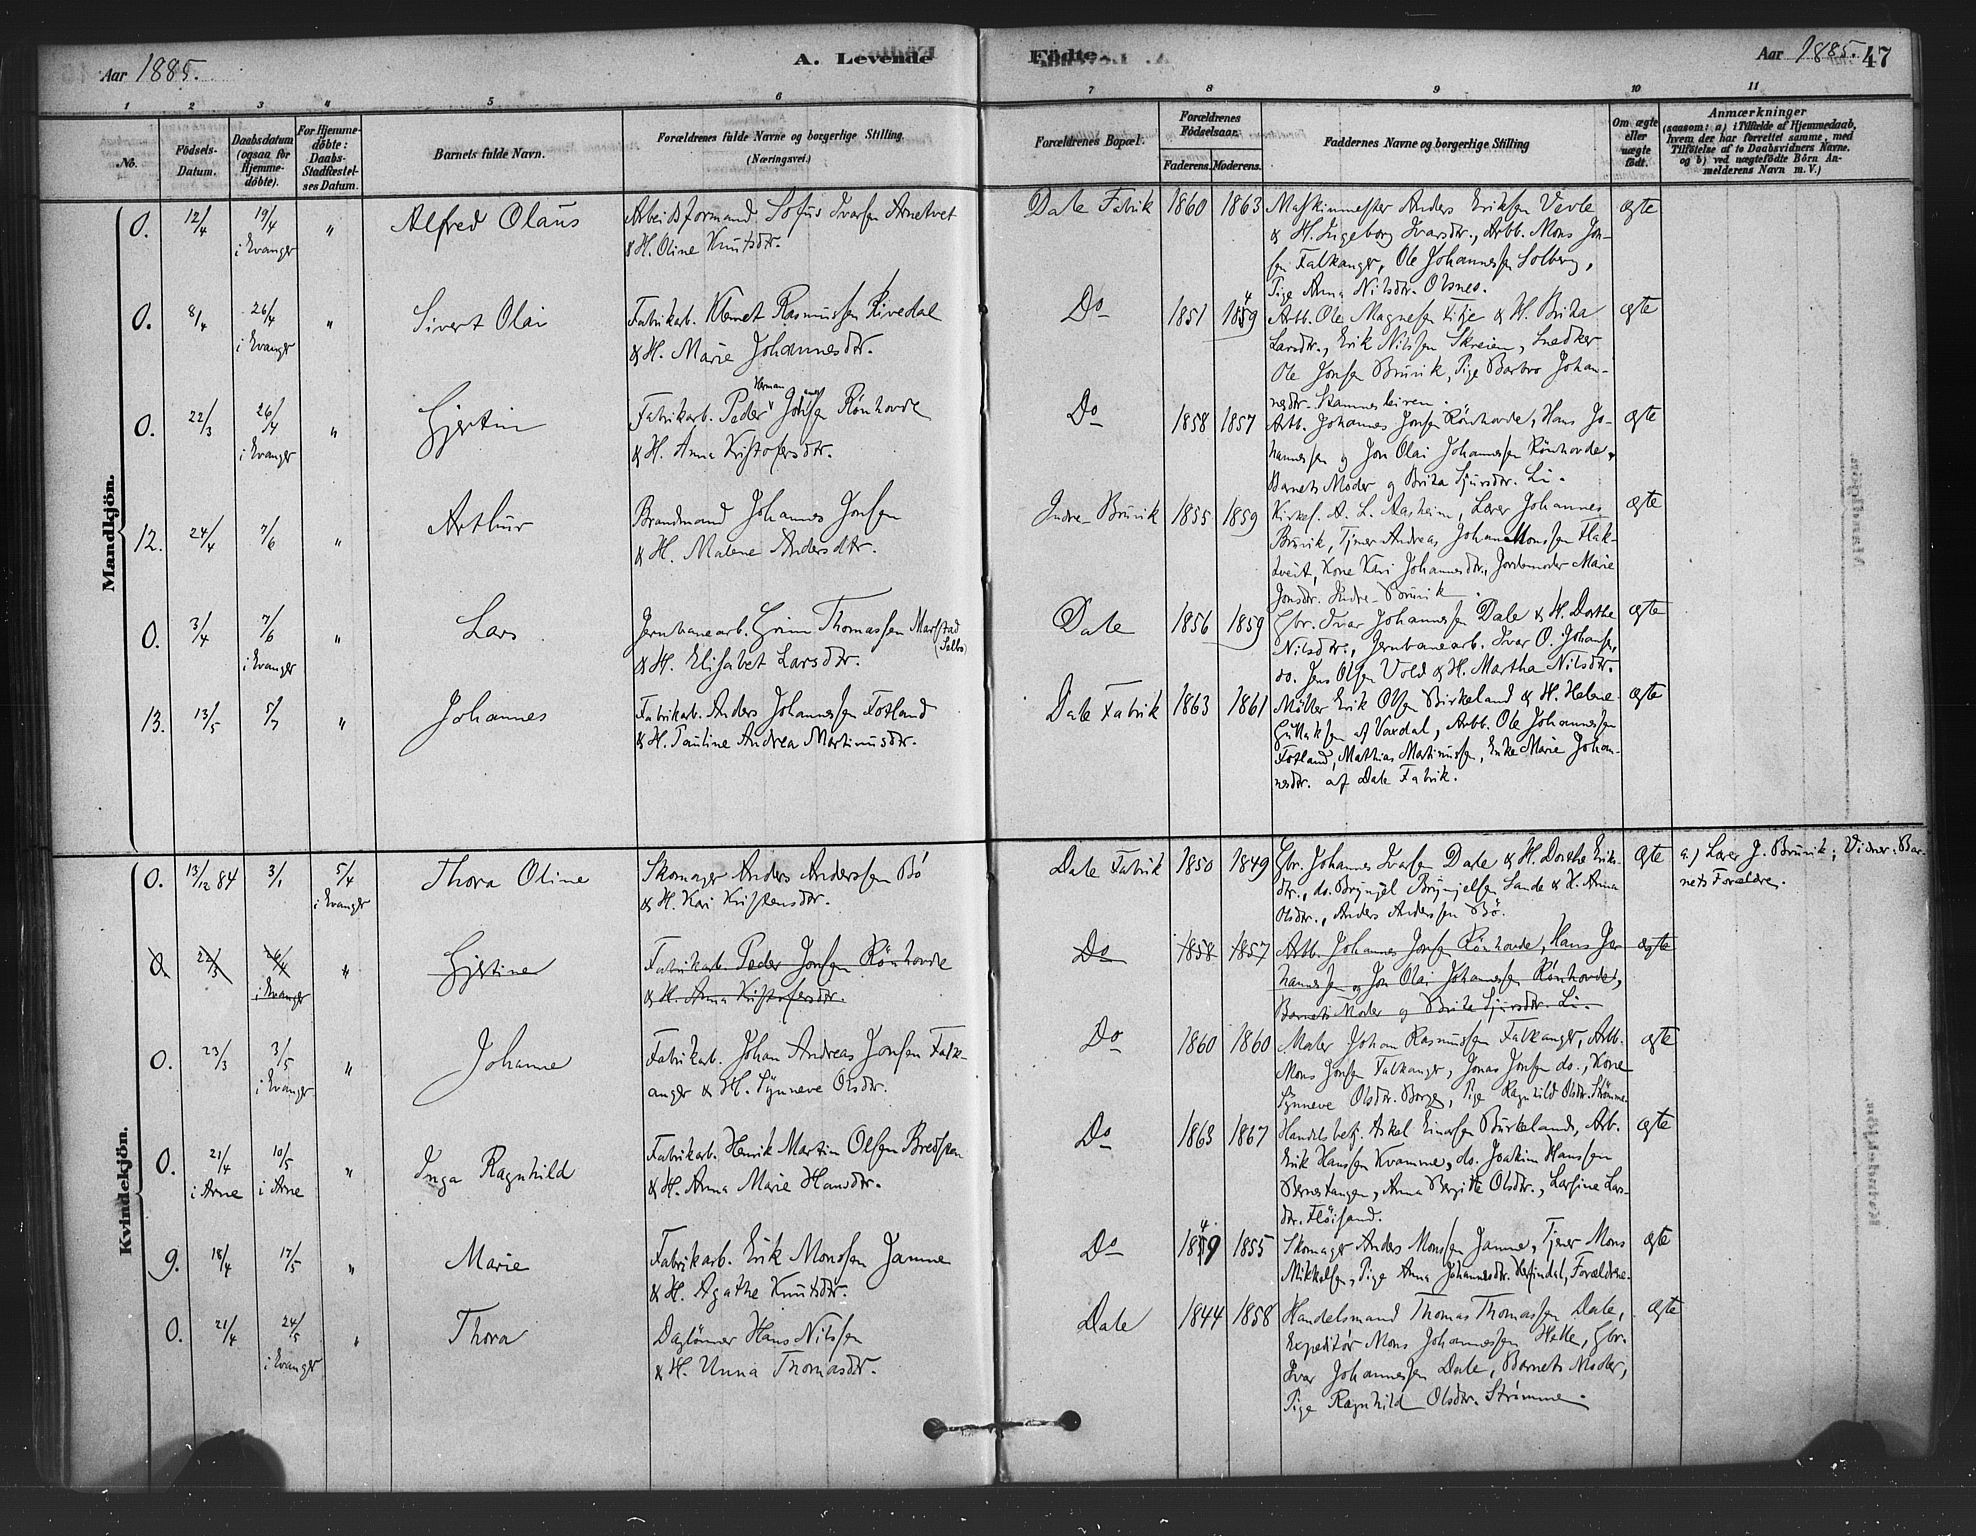 Aar 1885.
A. Levende
Födte.
Aar 1885. 47
1 2 3 4 5 6 7 8 9 10 11
No.
Födsels-
Datum.
Daabsdatum
(ogsaa for
Hjemme-
döbte).
For Hjemme-
döbte:
Daabs-
Stadfæstel-
ses Datum.
Barnets fulde Navn.
Forældrenes fulde Navne og borgerlige Stilling
(Næringsvei.)
Forældrenes Bopæl.
Forældrenes
Födselsaar.
Faderens. Moderens.
Faddernes Navne og borgerlige Stilling
Om ægte
eller
uægte
födt.
Anmærkninger
(saasom: a) i Tilfælde af Hjemmedaab,
hvem der har forrettet samme, med
Tilföielse af to Daabsvidners Navne.
og b) ved uægtefödte Börn An-
melderens Navn m. V.)
Mandkjön.
0. 12/4 19/4 " Alfred Olaus
i Evanger
Arbeidsformand Sofus Ivarsen Arnetvet
& H. Oline Knutsdtr.
Dale Fabrik 1860 1863
Maskinmester Anders Eriksen Vevle
& H. Ingeborg Ivarsdtr., Arbb. Mons Jon-
sen Falkanger, Ole Johannessen Solberg,
Pige Anna Nilsdtr. Olsnes.
ægte
0. 8/4 26/4 " Sivert Olai
i Evanger
Fabrikarb. Klemet Rasmussen Rivedal
& H. Marie Johannesdtr.
Do 1851 1859
4
Arbb. Ole Magnesen Fitje & H. Brita
Larsdtr., Erik Nilssen Skreien, Snedker
Ole Jonsen Bruvik, Pige Barbro Johan-
nesdtr. Stamnesleiren.
ægte
0. 22/3 26/4 " Gjertin
i Evanger
Herman
Fabrikarb. Peder Jonsen Rönhovde
& H. Anna Kristofersdtr.
Do 1858 1857
Arbb. Johannes Jonsen Rönhovde, Hans Jo-
hannessen og Jon Olai Johannessen Rönhovde,
Barnets Moder og Brita Sjursdtr. Li.
ægte
12. 24/4 7/6 " Arthur
Brandmand Johannes Jonsen
& H. Malene Andersdtr.
Indre-Bruvik 1855 1859
Kirkes. A. L. Aasheim, Lærer Johannes
Bruvik, Tjener Andreas Johan Monssen Flak-
tveit, Kone Kari Johannesdtr., Jordemoder Marie
Jonsdtr. Indre-Bruvik.
ægte
0. 3/4 7/6 " Lars
i Evanger
Jernbanearb. Grim Thomassen Marstad
(Selbo)
& H. Elisabet Larsdtr.
Dale 1856 1859
Gbr. Ivar Johannessen Dale & H. Dorthe
Nilsdtr., Jernbanearb. Ivar O. Johansen,
do. Jens Olsen Vold & H. Martha Nilsdtr.
ægte
13. 13/5 5/7 " Johannes
Fabrikarb. Anders Johannessen Fotland
& H. Pauline Andrea Martinusdtr.
Dale Fabrik 1863 1861
Möller Erik Olsen Birkeland & H. Helene
Gullaksen af Vaxdal, Arbb. Ole Johannessen
Fotland, Mathias Martinussen, Enke Marie Johan-
nesdtr. af Dale Fabrik.
ægte
Kvindekjön.
0. 13/12 84 3/1 5/4 Thora Oline
i Evanger
Skomager Anders Anderssen Bö
& H. Kari Kristensdtr.
Dale Fabrik 1850 1849
Gbr. Johannes Ivarsen Dale & H. Dorthe Erik-
dtr., do. Brynjel Brynjelsen Lande & H. Anna
Olsdtr., Anders Anderssen Bö.
ægte
a.) Lærer J. Bruvik; Vidner: Bar-
nets Forældre.
0. 22/3 26/4 " Gjertine
i Evanger
Fabrikarb. Peder Jonsen Rönhovde
& H. Anna Kristofersdtr.
Do 1858 1857
Arbb. Johannes Jonsen Rönhovde, Hans Jo-
hannessen og Jon Olai Johannessen Rönhovde,
Barnets Moder og Brita Sjursdtr. Li.
ægte
0. 23/3 3/5 " Johanne
i Evanger
Fabrikarb. Johan Andreas Jonsen Falk-
anger & H. Synneve Olsdtr.
Do 1860 1860
Maler Johan Rasmussen Falkanger, Arbb.
Mons Jonsen Falkanger, Jonas Jonsen do., Kone
Synneve Olsdtr. Borge, Pige Ragnhild Olsdtr. Strömme
ægte
0. 21/4 10/5 " Inga Ragnhild
i Arne i Arne
Fabrikarb. Henrik Martin Olsen Bredsten
& H. Anna Marie Hansdtr.
Do 1863 1867
Handelsbetj. Askel Einarsen Burkeland, Arb.
Erik Hanssen Kvamme, do. Joakim Hanssen
Bernestangen, Anna Bergitte Olsdtr., Larsine Lars-
dtr. Flöisand.
ægte
9. 18/4 17/5 " Marie
Fabrikarb. Erik Monssen Jamne
& H. Agathe Knutsdtr.
Do 1859 1855
4
Skomager Anders Monssen Jamne, Tjener Mons
Mikkelsen, Pige Anna Johannesdtr. Herfindal, Forældrene.
ægte
0. 21/4 24/5 " Thora
i Evanger
Daglönner Hans Nilssen
& H. Unna Thomasdtr.
Dale 1844 1858
Handelsmand Thomas Thomassen Dale,
Expeditör Mons Johannessen Helle, Gbr.
Ivar Johannessen Dale, Barnets Moder,
Pige Ragnhild Olsdtr. Strømme.
ægte